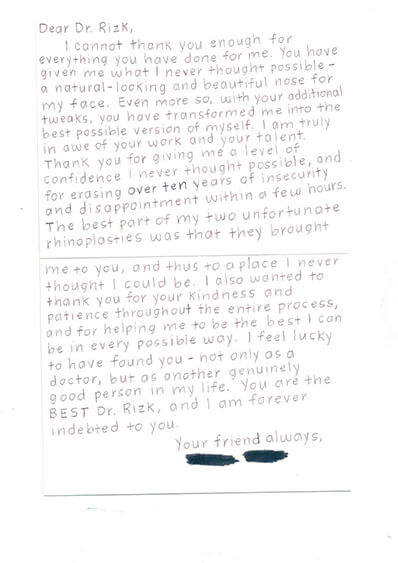 Dear Dr. Rizk,
I cannot thank you enough for
everything you have done for me. You have
given me what I never thought possible -
a natural-looking and beautiful nose for
my face. Even more so, with your additional
tweaks, you have transformed me into the
best possible version of myself. I am truly
in awe of your work and your talent.
Thank you for giving me a level of
confidence I never thought possible, and
for erasing over ten years of insecurity
and disappointment within a few hours.
The best part of my two unfortunate
rhinoplasties was that they brought
me to you, and thus to a place I never
thought I could be. I also wanted to
thank you for your kindness and
patience throughout the entire process,
and for helping me to be the best I can
be in every possible way. I feel lucky
to have found you - not only as a
doctor, but as another genuinely
good person in my life. You are the
BEST Dr. Rizk, and I am forever
indebted to you.
Your friend always,